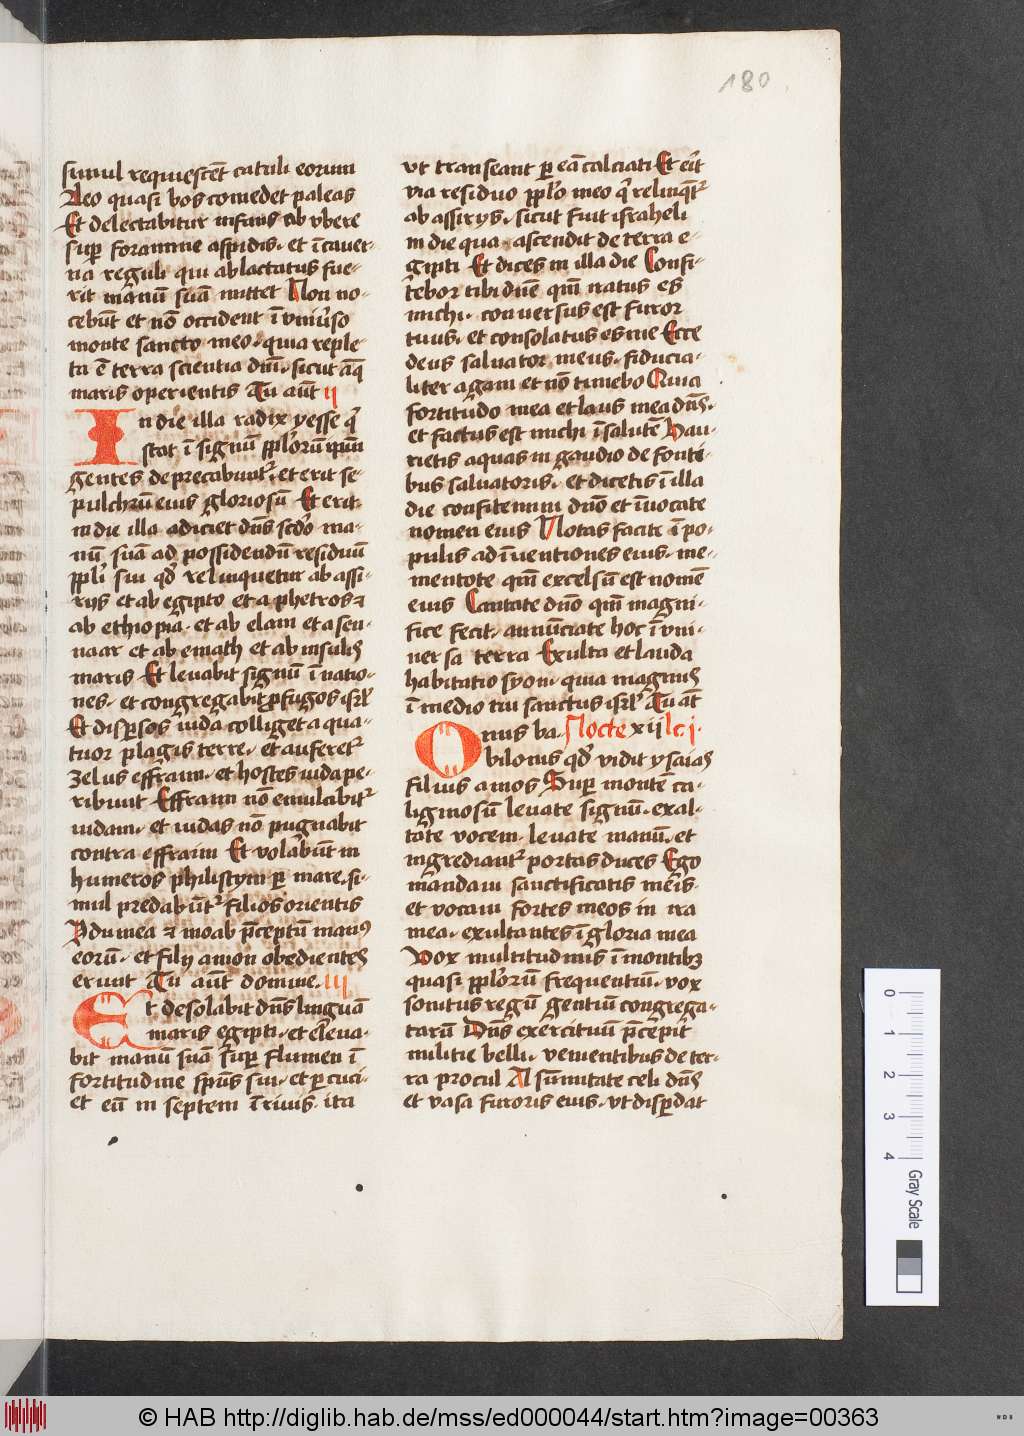 180
simul requiescēt catuli eorum
Leo quasi bos comedet paleas
Et delectabitur infans ab vbere
sup foramine aspidis · et ī cauer-
na reguli qui ablactatus fue-
rit manū suā mittet Non no-
cebūt et nō occident ī vniuso
monte sancto meo · quia reple-
ta ē terra scientia dnī · sicut aq̄
maris operientis Tu aūt ii
In die illa radix yesse q
stat ī signū pplorū ipm̄
gentes deprecabunt · et erit se-
pulchrū eius gloriosū Et erit
in die illa adiciet dns̄ scdo ma-
nū suā ad possidendū residuū
ppli sui qd relinquetur ab assi-
rijs et ab egipto et a phetros ⁊
ab ethiopia · et ab elam et a sen-
naar et ab emath et ab insulis
maris Et leuabit signū ī natio-
nes · et congregabit pfugos isrl
Et dispersos iuda colliget a qua-
tuor plagis terre · et auferet
zelus effraim · et hostes iuda pe-
ribunt Effraim nō emulabit
iudam · et iudas nō pugnabit
contra effraim Et volabūt in
humeros philistym p mare · si-
mul predabūt filios orientis
Ydumea ⁊ moab pceptū manus
eorū · et filij amon obedientes
erunt Tu aūt domine iii
Et desolabit dns̄ linguā
maris egipti · et eleua-
bit manū suā sup flumen ī
fortitudine spūs sui · et p cuci-
et eū in septem ī riuis · ita
vt transeant p eā calciati Et erit
via residuo pplo meo q relinqt
ab assirijs · sicut fuit israheli
in die qua ascendit de terra e-
gipti Et dices in illa die Confi-
tebor tibi dn̄e qm̄ iratus es
michi · conuersus est furor
tuus · et consolatus es me Ecce
deus saluator meus · fiducia-
liter agam et nō timebo Quia
fortitudo mea et laus mea dn̄s ·
et factus est michi ī salutē Hau-
rietis aquas in gaudio de fonti-
bus saluatoris · et dicetis ī illa
die confitemini dn̄o et īuocate
nomen eius Notas facite ī po-
pulis adīuentiones eius · me-
mentote qm̄ excelsū est nomē
eius Cantate dn̄o qm̄ magni-
fice fecit · annūciate hoc ī vni-
uersa terra Exulta et lauda
habitatio syon · quia magnus
ī medio tui sanctus isrl Tu aūt
Onus ba- Nocte xii lc i ·
bilonis qd vidit ysaias
filius amos Sup montē ca-
liginosū leuate signū · exal-
tate vocem · leuate manū · et
ingrediant portas duces Ego
mandaui sanctificatis meis ·
et vocaui fortes meos in ira
mea · exultantes ī gloria mea
Vox multitudinis ī montibꝫ
quasi pplorū frequentiū · vox
sonitus regū gentiū congrega-
tarū Dns̄ exercituū pcepit
militie belli · venientibus de ter-
ra procul A sūmitate celi dns̄
et vasa furoris eius · vt disperdat
0
1
2
3
4
Gray Scale
© HAB http://diglib.hab.de/mss/ed000044/start.htm?image=00363